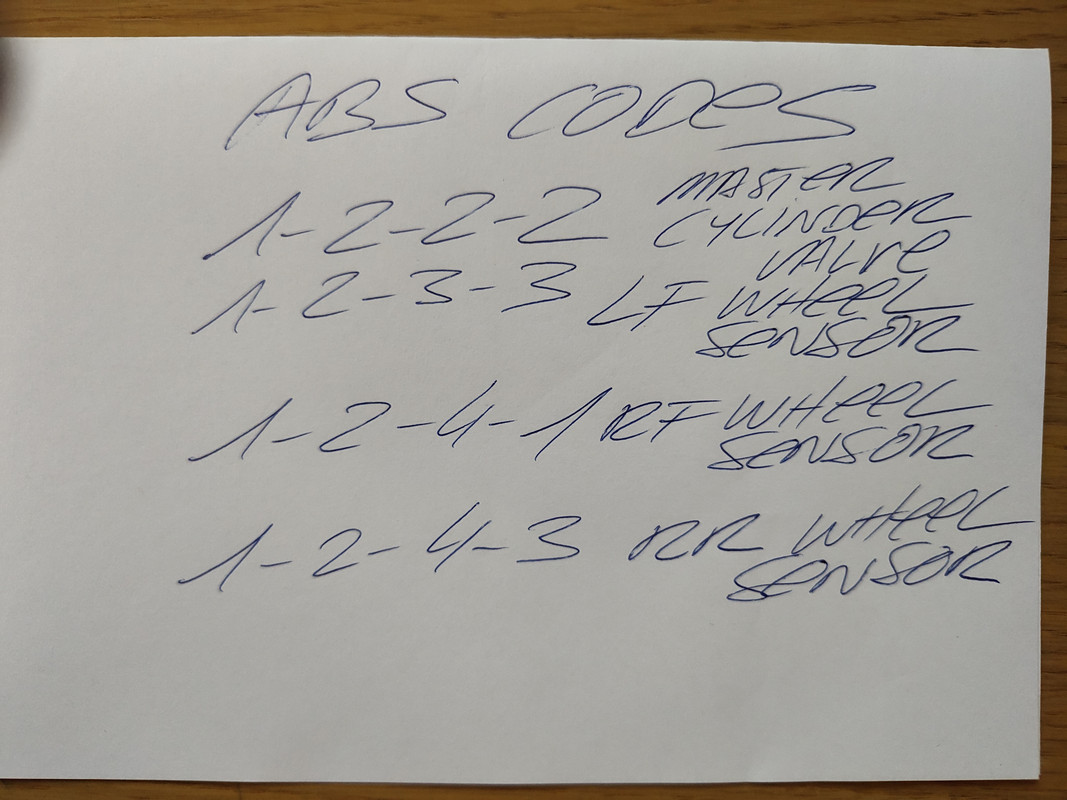 ABS CODeS
1-2-2-2 MASTeR
CYLINDeR
VALVe
1-2-3-3 LF WHeeL
SeNSOR
1-2-4-1 RF WHeeL
SeNSOR
1-2-4-3 RR WHeeL
SeNSOR